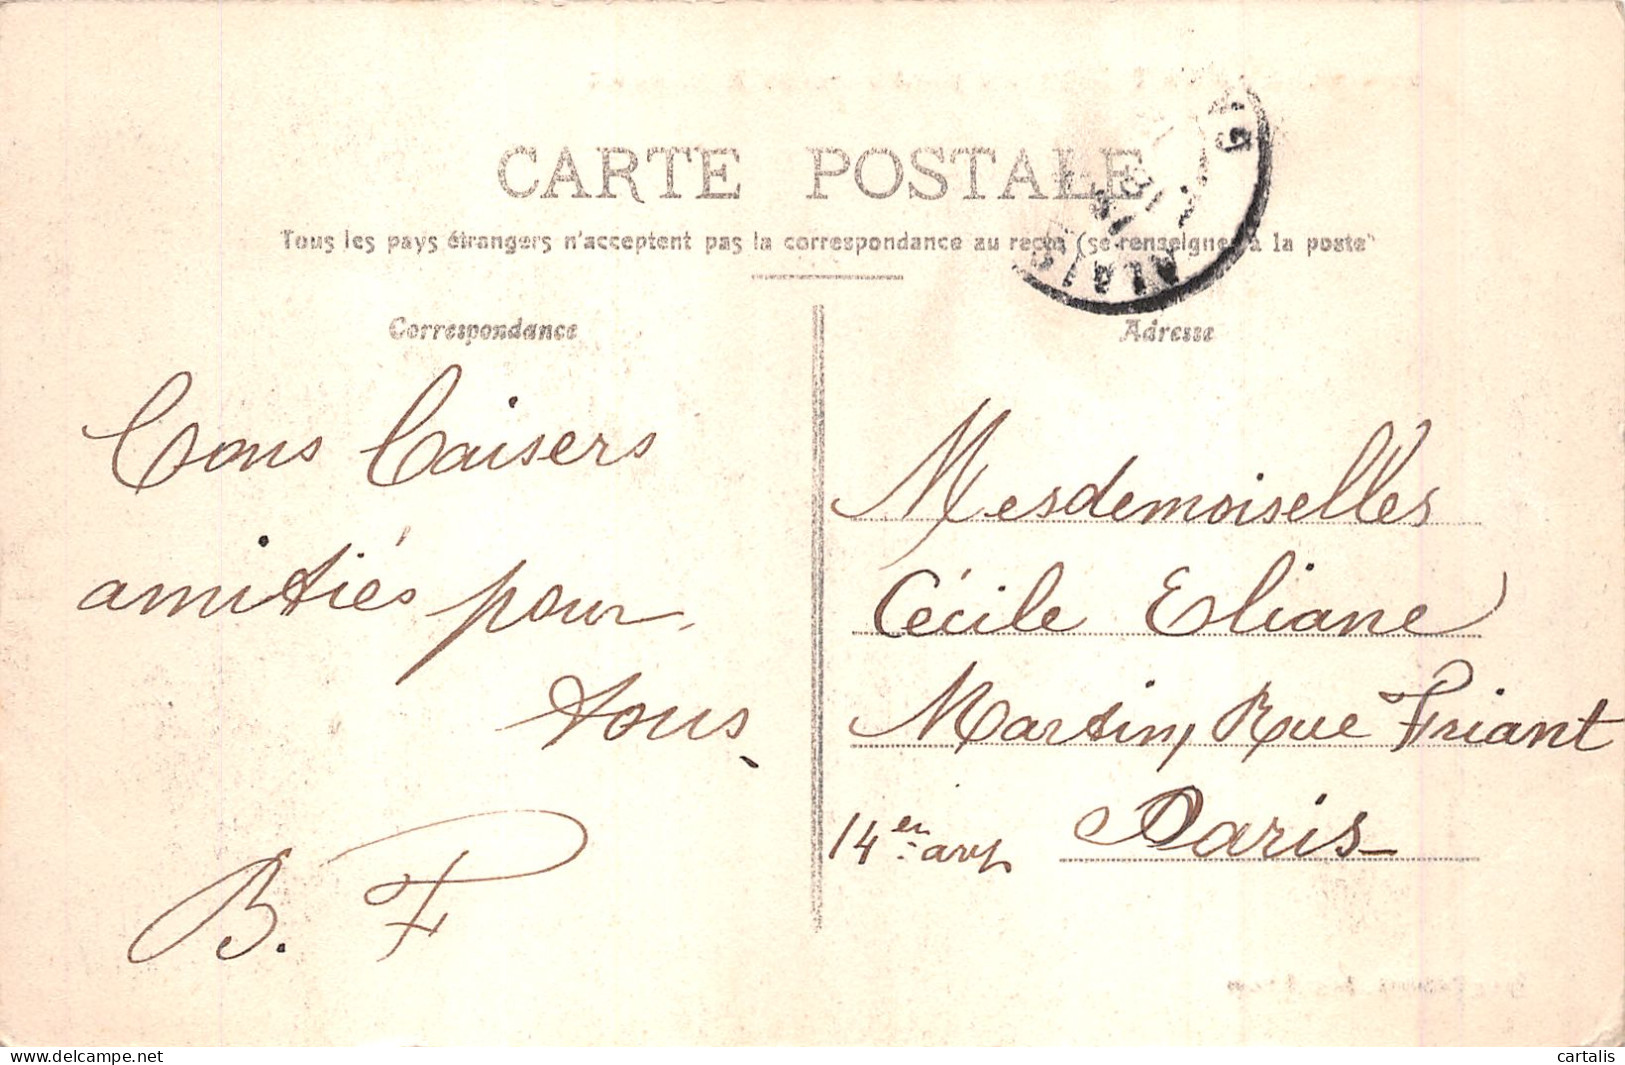 CARTE POSTALE
Tous les pays étrangers n'acceptent pas la correspondance au recto (se renseigner à la poste)
Correspondance
Adresse
Bons Baisers
amitiés pour
tous.
B. F
Mesdemoiselles
Cécile Eliane
Martin, Rue Friant
14en arrt Paris
ALAIS
delcampe.net
cartalis